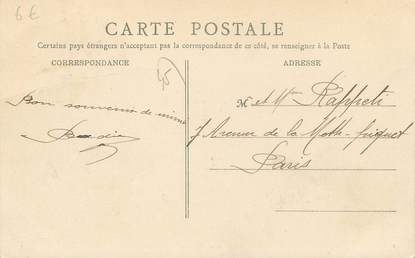 6€
CARTE POSTALE
Certains pays étrangers n'acceptant pas la correspondance de ce côté, se renseigner à la Poste
CORRESPONDANCE
ADRESSE
45
Bon souvenir de
M et Mme Rappeti
7 Avenue de la Motte-piquet
Paris